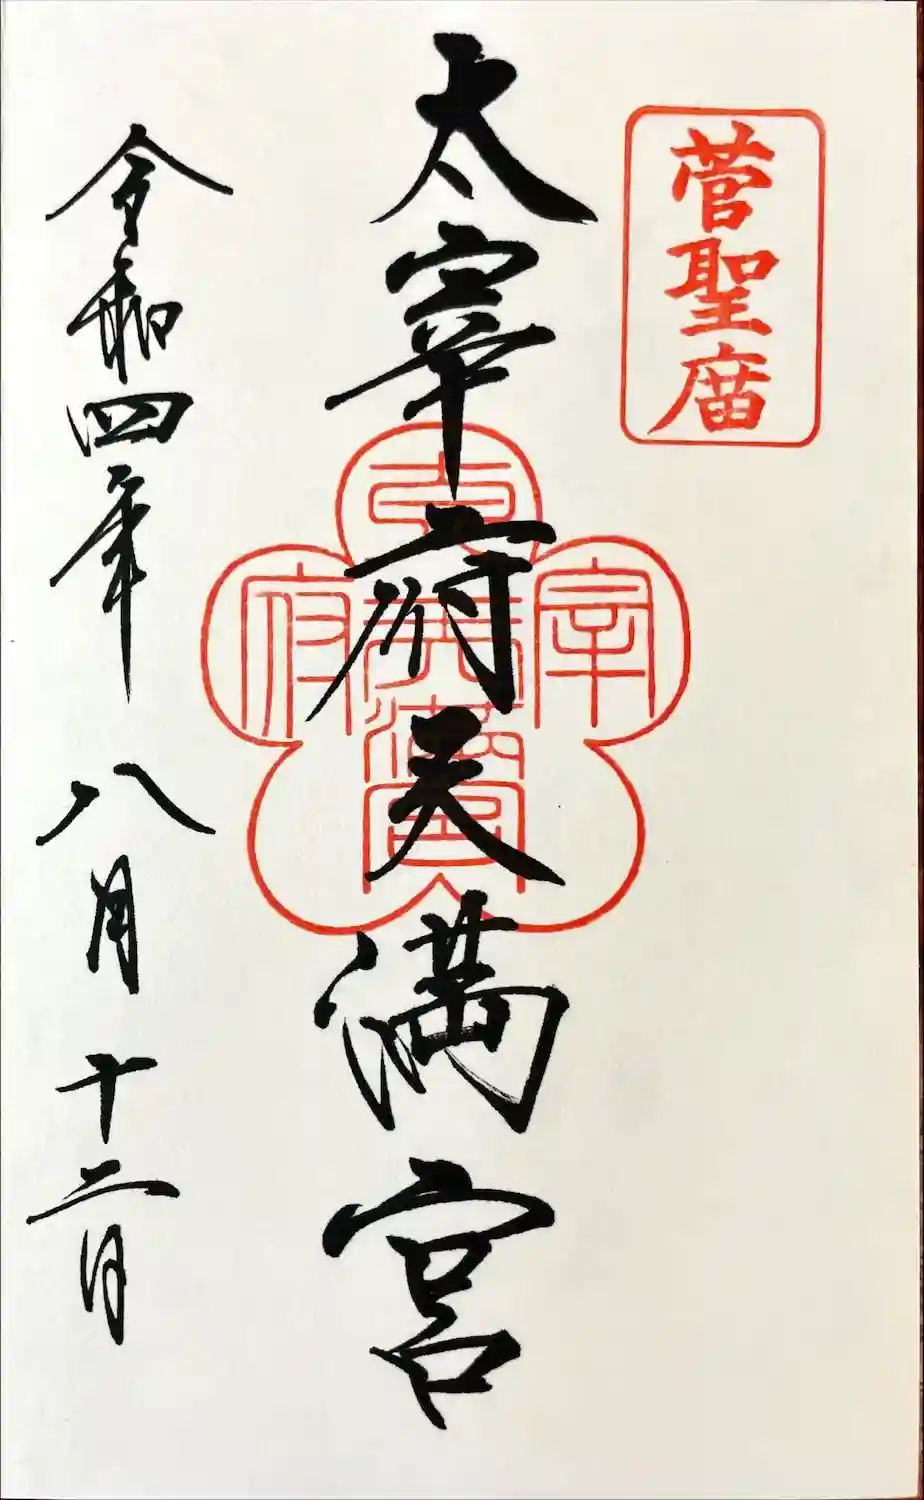 菅聖庿
太宰府天満宮
太宰府天満宮
令和四年 八月十二日